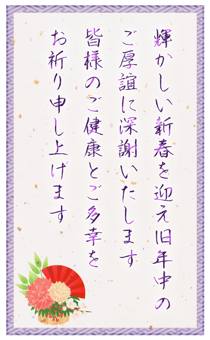 輝かしい新春を迎え旧年中の
ご厚誼に深謝いたします
皆様のご健康とご多幸を
お祈り申し上げます